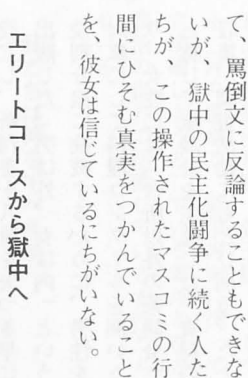 て、罵倒文に反論することもできな
いが、獄中の民主化闘争に続く人た
ちが、この操作されたマスコミの行
間にひそむ真実をつかんでいること
を、彼女は信じているにちがいない。
エリートコースから獄中へ